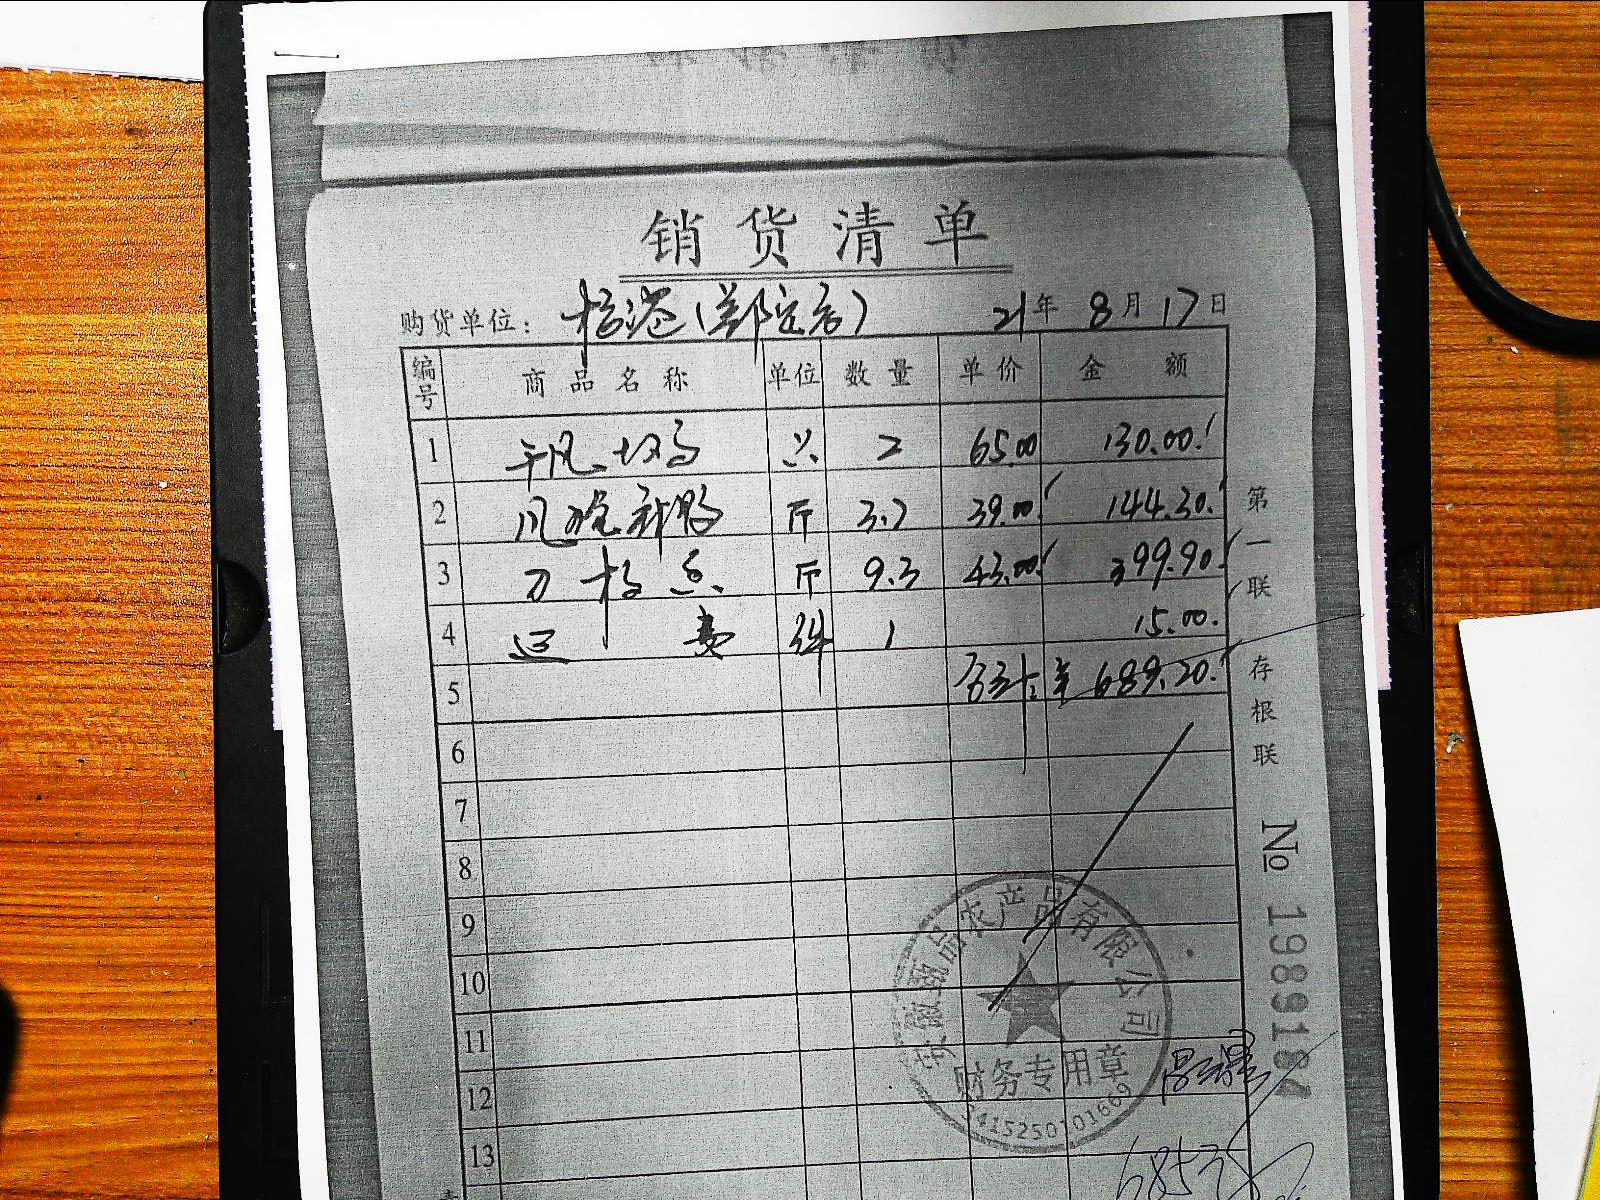 销货清单
购货单位： 21年 8月 17日
编号 商品名称 单位 数量 单价 金额
1 只 2 65.00 130.00
2 斤 3.7 39.00 144.30
3 刀板香 斤 9.3 43.00 399.90
4 运费 件 1 15.00
5 合计：¥ 689.20
6
7
8
9
10
11
12
13
第一联 存根联
№ 1989184
安徽甄品农产品有限公司
财务专用章
3415250101669